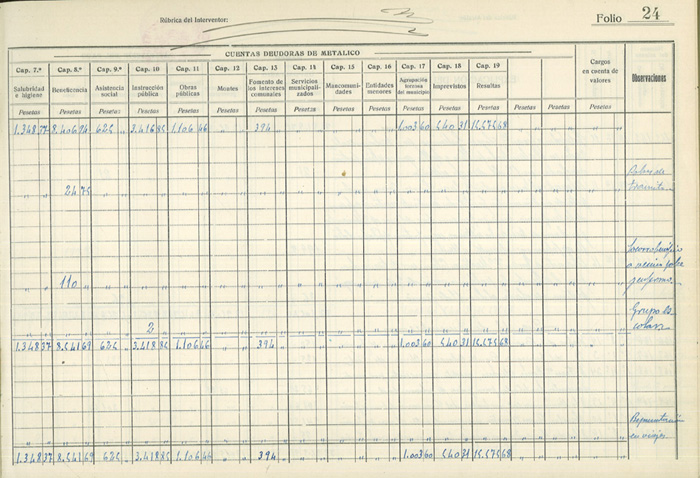 Rúbrica del Interventor:
Folio 24
CUENTAS DEUDORAS DE METALICO
Cap. 7.º Cap. 8.º Cap. 9.º Cap. 10 Cap. 11 Cap. 12 Cap. 13 Cap. 14 Cap. 15 Cap. 16 Cap. 17 Cap. 18 Cap. 19
Salubridad e higiene Beneficencia Asistencia social Instrucción pública Obras públicas Montes Fomento de los intereses comunales Servicios municipalizados Mancomunidades Entidades menores Agrupación forzosa del municipio Imprevistos Resultas Cargos en cuenta de valores Observaciones
Pesetas Pesetas Pesetas Pesetas Pesetas Pesetas Pesetas Pesetas Pesetas Pesetas Pesetas Pesetas Pesetas Pesetas Pesetas Pesetas Pesetas
1.348 37 8.406 94 625 3.416 85 1.106 46 394 1.003 60 540 31 15.575 68
24 75
110
Grupo
2
1.348 37 8.541 69 625 3.418 85 1.106 46 394 1.003 60 540 31 15.575 68
Representación
en viajes
1.348 37 8.541 69 625 3.418 85 1.106 46 394 1.003 60 540 31 15.575 68